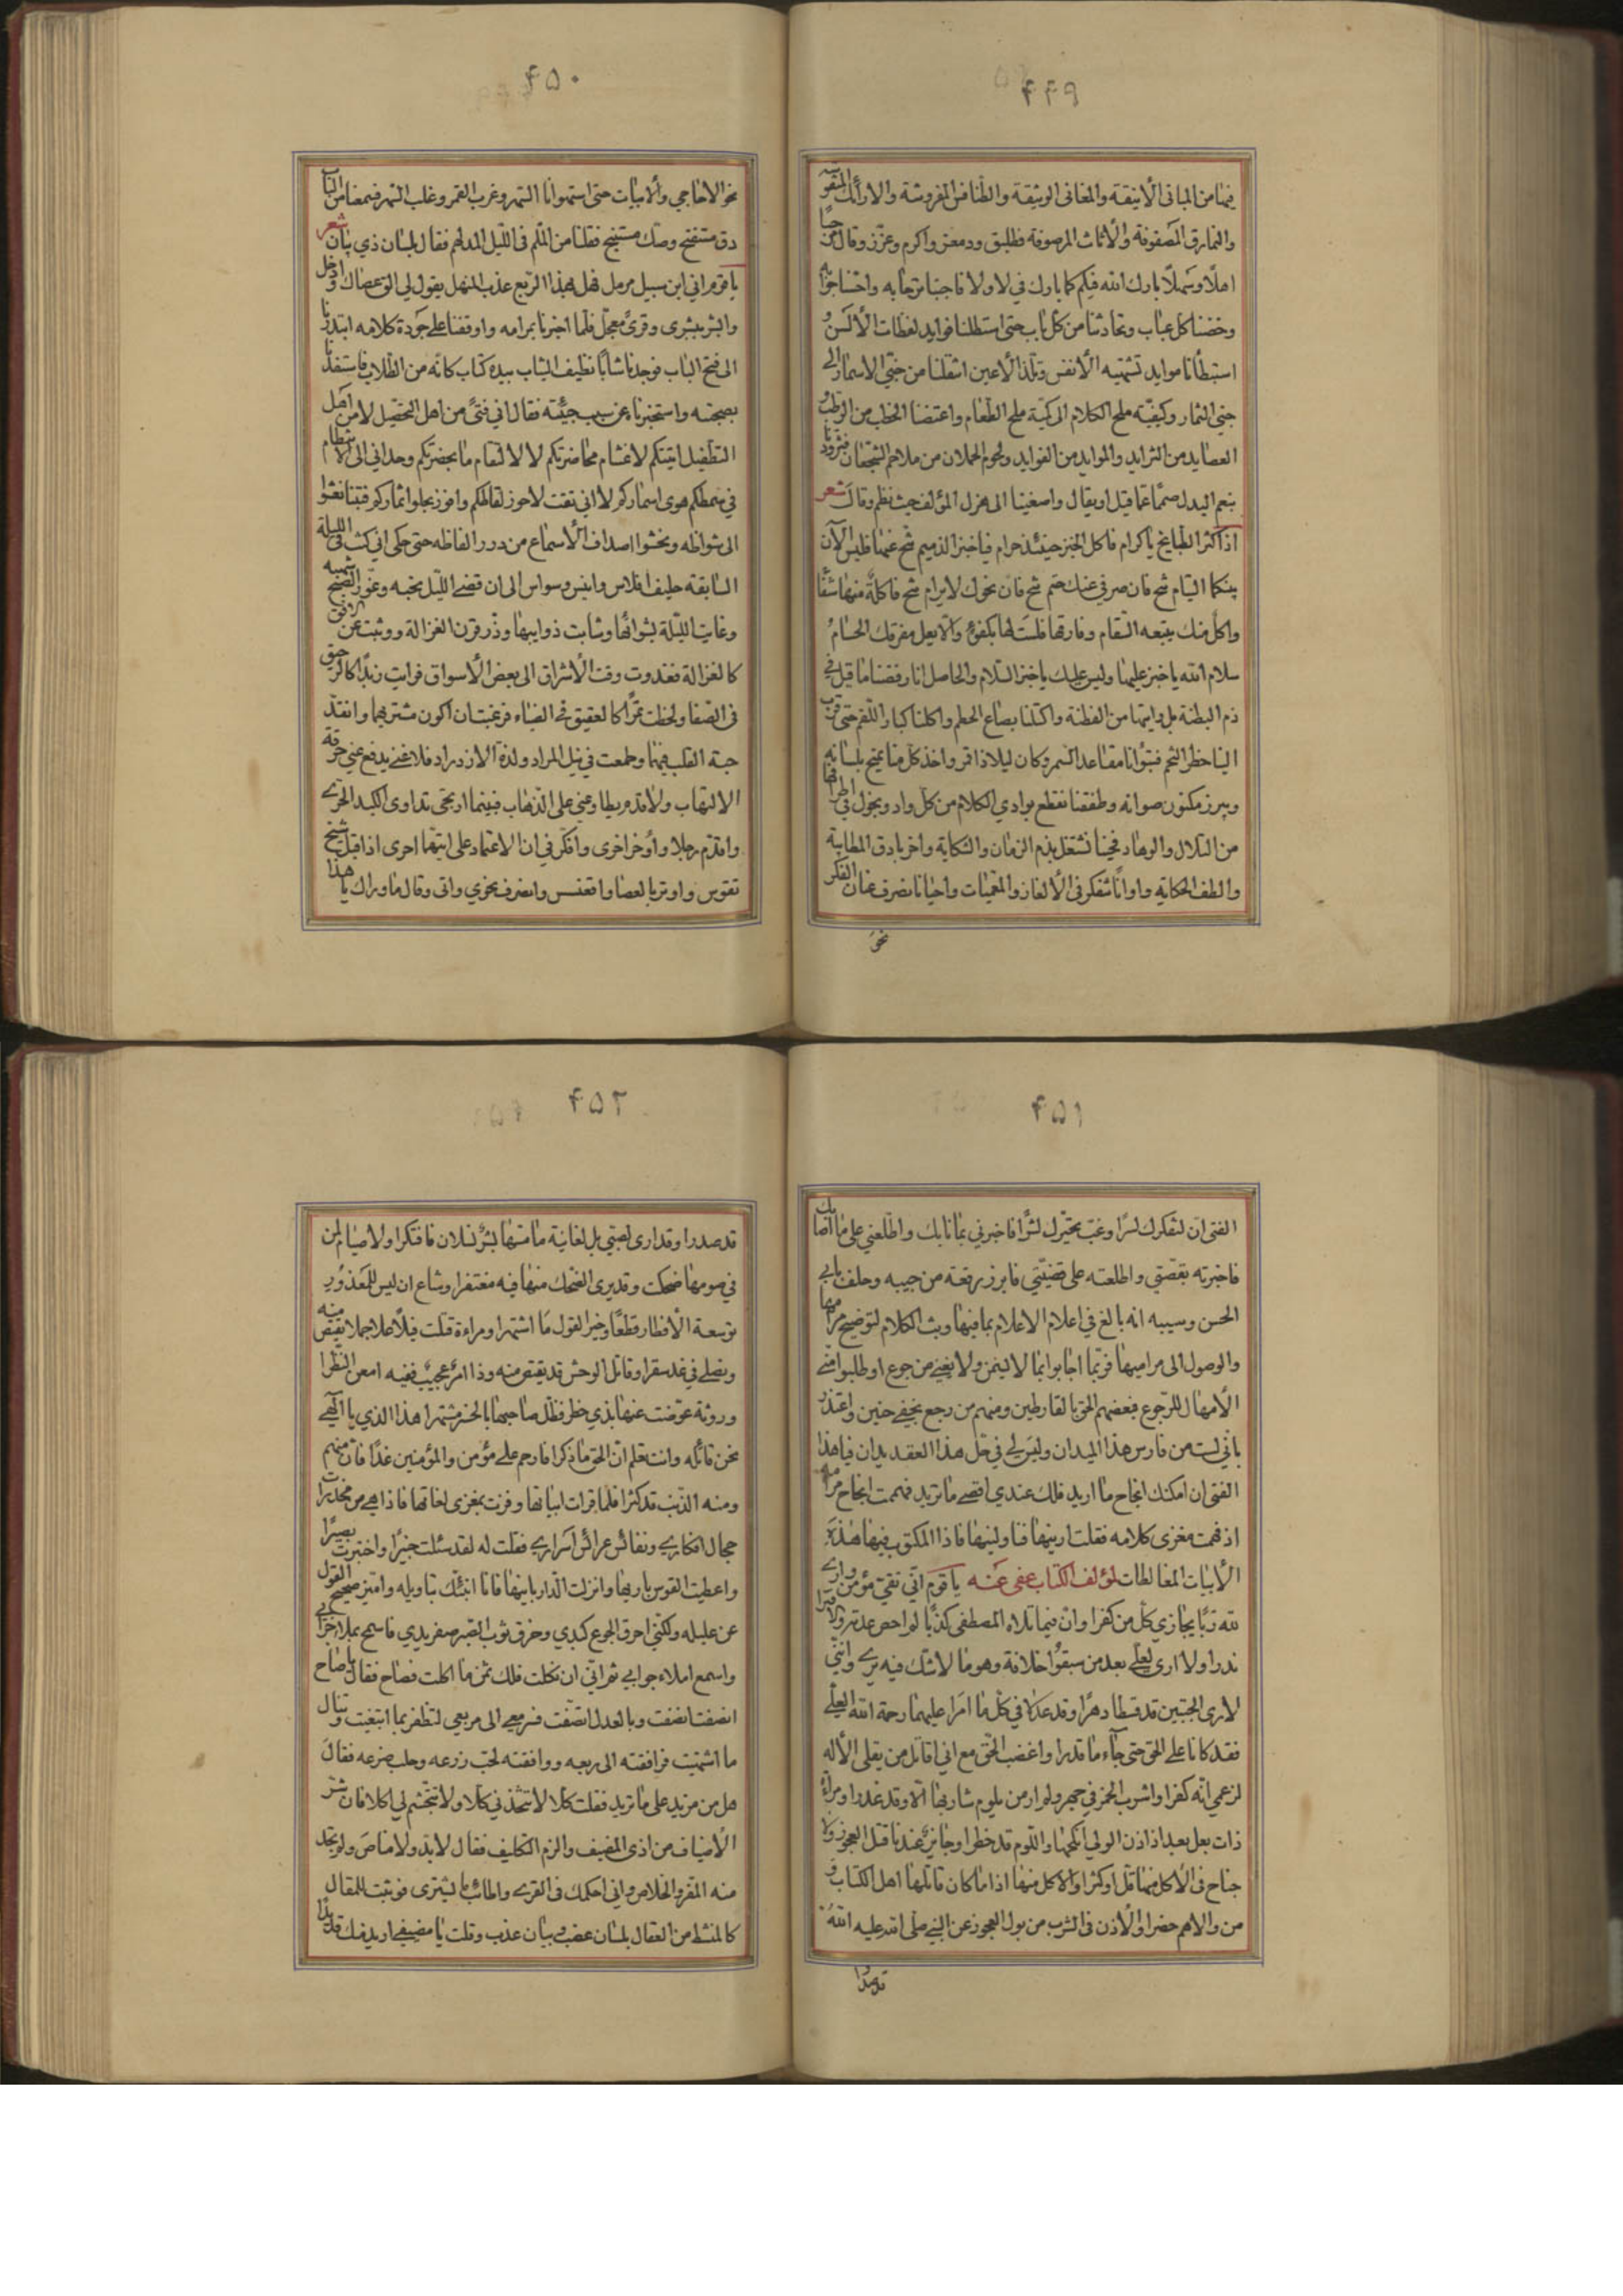 ۴۴۹
فيها من المباني الأنيقة والمغاني الوثيقة والطنافس المفروشة والارائك المنقوشة
والنمارق المصفوفة والأثاث المرصوفة فطلبق ودمعز واكرم وعزز وقال من
اهلا وسهلا بارك الله فيكم كما بارك في لا ولا فاجبنا ترحابه واحتسنا
وخضنا كل عباب وتحادثنا من كل باب حتى استطلنا فوايد لفظات الألسن و
استبطأنا موايد تشتهيه الأنفس وتلذ الأعين انتقلنا من جني الاسمار الى
جني الثمار وكيفية ملح الكلام الى كمية ملح الطعام واعتضنا الخطب من الرطب و
العصايد من الثرايد والموايد من الفوايد ولحوم الحملان من ملاحم الشجعان
بنعم البدل صمّا عما قيل او يقال واصغينا الى هزل المؤلف حيث نظم وقال شعر
اذا كثر الطبايخ يا كرام فاكل الخبز حينئذ حرام فيا خبز الذميم تنح عنها فليس الآن
بينكما التيام تنح فان صرفي عنك حتم تنح فان نحوك لا يرام تنح فاكلة منها شفا
واكل منك يتبعه السقام وفارقها فلست لها بكفؤ والا يعل مفرقك الحسام
سلام الله يا خبز عليها وليس عليك يا خبز السلام والحاصل انا رفضنا ما قيل في
ذم البطنة بل وايتها من الفطنة واكتلنا بصاع الحطم واكلنا كبار اللقم حتى قرب
الينا خطر التخم فتبوّانا مقاعد السمر وكان ليلا ذا قر واخذ كل منا يميح بلسانه
ويبرز مكنون صوانه وطفقنا نقطع بوادي الكلام من كل واد ونجول في اطرافها
من التلال والوهاد فحينا نشتغل بذم الزمان والشكاية واخر بادق المطايبة
والطف الحكاية واوانا نتفكر في الألغاز والمعميات واحيانا نصرف عنان الفكر
نحو
۴۵۰
نحو الاحاجي والأبيات حتى استهوانا السمر وغرب القمر وغلب السهر فسمعنا من الباب
دق مستفتح وصك مستنبح فقلنا من الملم في الليل المدلهم فقال بلسان ذي بيان شعر
يا قوم اني ابن سبيل مرمل فهل بهذا الربع عذب المنهل يقول لي الق عصاك وادخل
وابشر ببشرى وقرى معجل فلما اخبرنا بمرامه واوقفنا على جودة كلامه ابتدرنا
الى فتح الباب فوجدنا شابا نظيف الثياب بيده كتاب كانه من الطلاب فاستفذنا
بصحبته واستخبرنا عن سبب جيئته فقال اني فتى من اهل التحصيل لا من اهل
التطفيل اتيتكم لاغتنام محاضرتكم لا لالتقام ما بحضرتكم وحداني الى الانتظام
في سمطكم هوى اسماركم لا اني تقت لاحوز لقاطكم وافوز بحلو اثماركم فبتنا نعشوا
الى شواظه ونحشوا اصداف الأسماع من درر الفاظه حتى حكى اني كنت في الليلة
السابقة حليف افلاس وانيس وسواس الى ان قضى الليل نحبه وغوّر الصبح شهبه
وغابت الليلة بشوائبها وشابت ذوايبها وذر قرن الغزالة ووثبت عن الأفق
كالغزالة فغدوت وقت الأشراق الى بعض الأسواق فرايت زبدا كالرحيق
في الصفا ولحظت تمرا كالعقيق في الضياء فرغبت ان اكون مشتريهما وانقد
حبة القلب فيهما وطمعت في نيل المراد ولذة الازدراد فلا غني يدفع عني حرقة
الالتهاب ولا قدم يطاوعني على الذهاب فبينما ارتجى تداوى الكبد الحرى
واقدم رجلا وأوخر اخرى وافكر في ان الاعتماد على ايتهما احرى اذ اقبل شيخ
تقوس واوتر بالعصا واقعنسس وانصرف نحوي واتى وقال ما وراك يا هذا
۴۵۱
الفتى ان لتفكرك لسرا وغب تحيرك لشرا فاخبرني بما نابك واطلعني على ما اصابك
فاخبرته بقصتي واطلعته على قضيتي فابرز رقعة من جيبه وحلف بابي
الحسن وسيبه انه بالغ في اعلام الاعلام بما فيها وبث الكلام لتوضيح مرامها
والوصول الى مراميها فربما اجابوا بما لا يسمن ولا يغني من جوع او طلبوا مني
الأمهال للرجوع فبعضهم الحق بالقارظين ومنهم من رجع بخفي حنين واعتذر
بأني لست من فارس هذا الميدان وليس لي في حل هذا العقد يدان فيا هذا
الفتى ان امكنك انجاح ما اريد فلك عندي اقصى ما تريد فهممت انجاح مرامه
اذ فهمت مغزى كلامه فقلت ارينيها فناولنيها فاذا المكتوب فيها هذه
الأبيات المغالطات لمؤلف الكتاب عفى عنه يا قوم اني تقي مؤمن وارى
لله ربا يجازي كل من كفرا وان فيما تلاه المصطفى كذبا لو احص عدته ولا
نذرا ولا ارى لعلي بعد من سبقوا خلافة وهو ما لا شك فيه يرى وانني
لارى الجبتين قد قسطا دهرا وقد عدلا في كل ما امرا عليهما رحمة الله العلي
فقد كانا على الحق حتى جآء ما قدرا واغضب الحق مع اني اقاتل من يقلى الأله
لزعمي انه كفرا واشرب الخمر في حجر ولم ار من يلوم شاربها الا وقد غدرا ومرأة
ذات بعل بعد اذ اذن الولي انكحها واللوم قد خطرا وجايز عندنا قتل العجوز ولا
جناح في الأكل منها قل او كثرا والاكل منها اذا ما كان قاتلها اهل الكتاب و
من والاهم حضرا والأذن في الشرب من بول العجوز عن النبي صلى الله عليه الله
قد صدرا
۴۵۲
قد صدرا وقد ارى لصبي بل لغانية ما مسها بشر نسلان فافتكرا ولا صيام لمن
في صومها ضحكت وقد يرى الضحك منها فيه مغتفرا وشاع ان ليس للمعذور
توسعة الأفطار قطعا وخير القول ما اشتهرا ومراءة قتلت فيلا علا جملا يقتص منه
ويصلى في غد سقرا وقاتل الوحش قد يقتص منه وذا امر عجيب ففيه امعن النظرا
وروثة عوضت عنها بذي خطر فظل صاحبها بالخسر مشتهرا هذا الذي يا الهي
نحن قائله وانت تعلم ان الحق ما ذكرا فارحم على مؤمن والمؤمنين غدا فان منهم
ومنه الذنب قد كثرا فلما قرات ابياتها وفزت بمغزى لغاتها فاذا هي من مخدرات
حجال افكاري ونفائس عرائس اسراري فقلت له لقد سئلت خبيرا واختبرت بصيرا
واعطيت القوس باريها وانزلت الدار بانيها فانا انبئك بتاويله واميز صحيح القول
عن عليله ولكنني احرق الجوع كبدي وخرق ثوب الصبر صفر يدي فاسمح بملا جرابي
واسمع املاء جوابي ثم اني ان نكلت فلك ثمن ما اكلت فصاح فقال يا صاح
انصفت انصفت وبالعدل اتصفت فسر معي الى مربعي لتظفر بما ابتغيت وتنال
ما اشتهيت فرافقته الى ربعه ووافقته لحب زرعه وحلب ضرعه فقال
هل من مزيد على ما تريد فقلت كلا لا تتخذني كلا ولا تتجشم لي اكلا فان شر
الأضياف من اذى المضيف والزم التكليف فقال لا بد ولا مناص ولم تجد
منه المفر والخلاص واني احكمك في القرى والطائب بالشرى فوثبت للمقال
كالمنشط من العقال بلسان عضب وبيان عذب وقلت يا مضيفي اريد منك قديدا